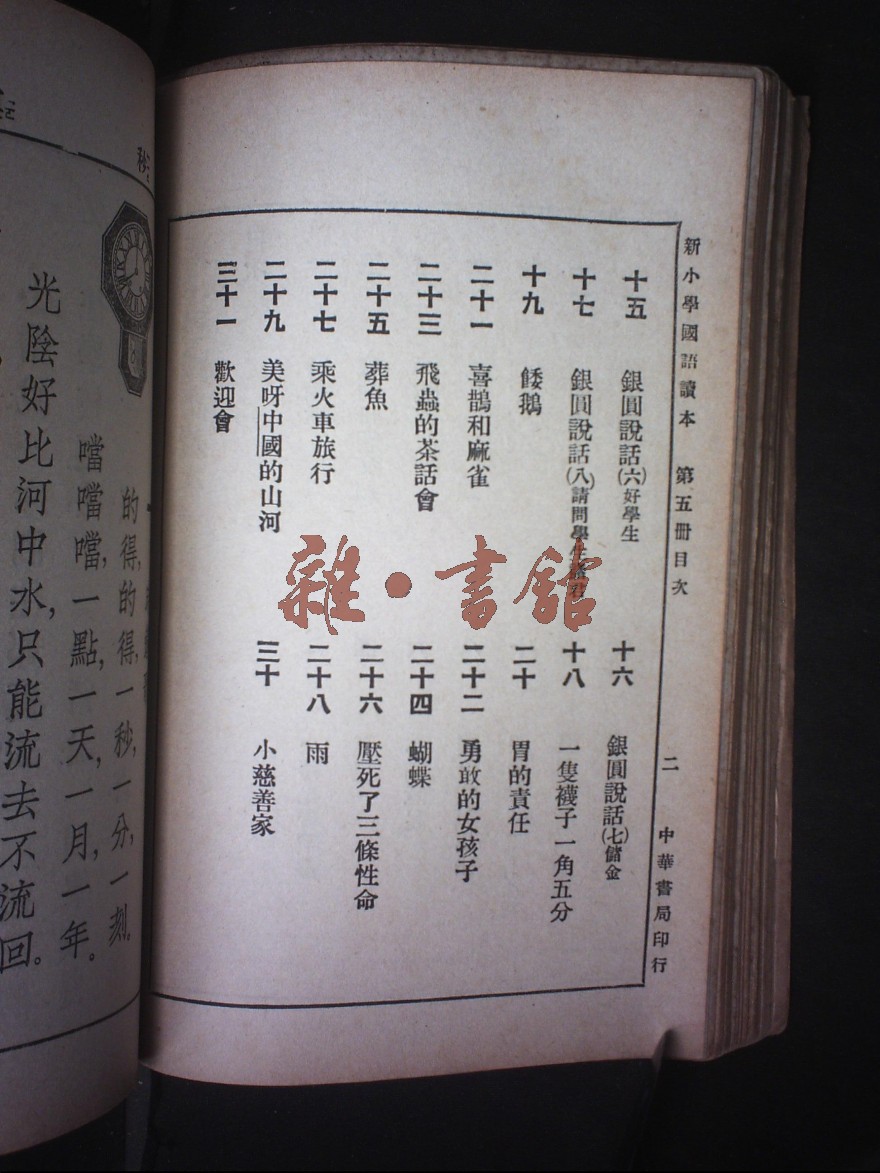 新小學國語讀本 第五冊目次 二 中華書局印行
十五 銀圓說話(六)好學生
十六 銀圓說話(七)儲金
十七 銀圓說話(八)請問學生諸君
十八 一隻襪子一角五分
十九 餧鵝
二十 胃的責任
二十一 喜鵲和麻雀
二十二 勇敢的女孩子
二十三 飛蟲的茶話會
二十四 蝴蝶
二十五 葬魚
二十六 壓死了三條性命
二十七 乘火車旅行
二十八 雨
二十九 美呀中國的山河
三十 小慈善家
三十一 歡迎會
雜·書館
的得,的得,一秒,一分,一刻。
噹噹噹,一點,一天,一月,一年。
光陰好比河中水,只能流去不流回。